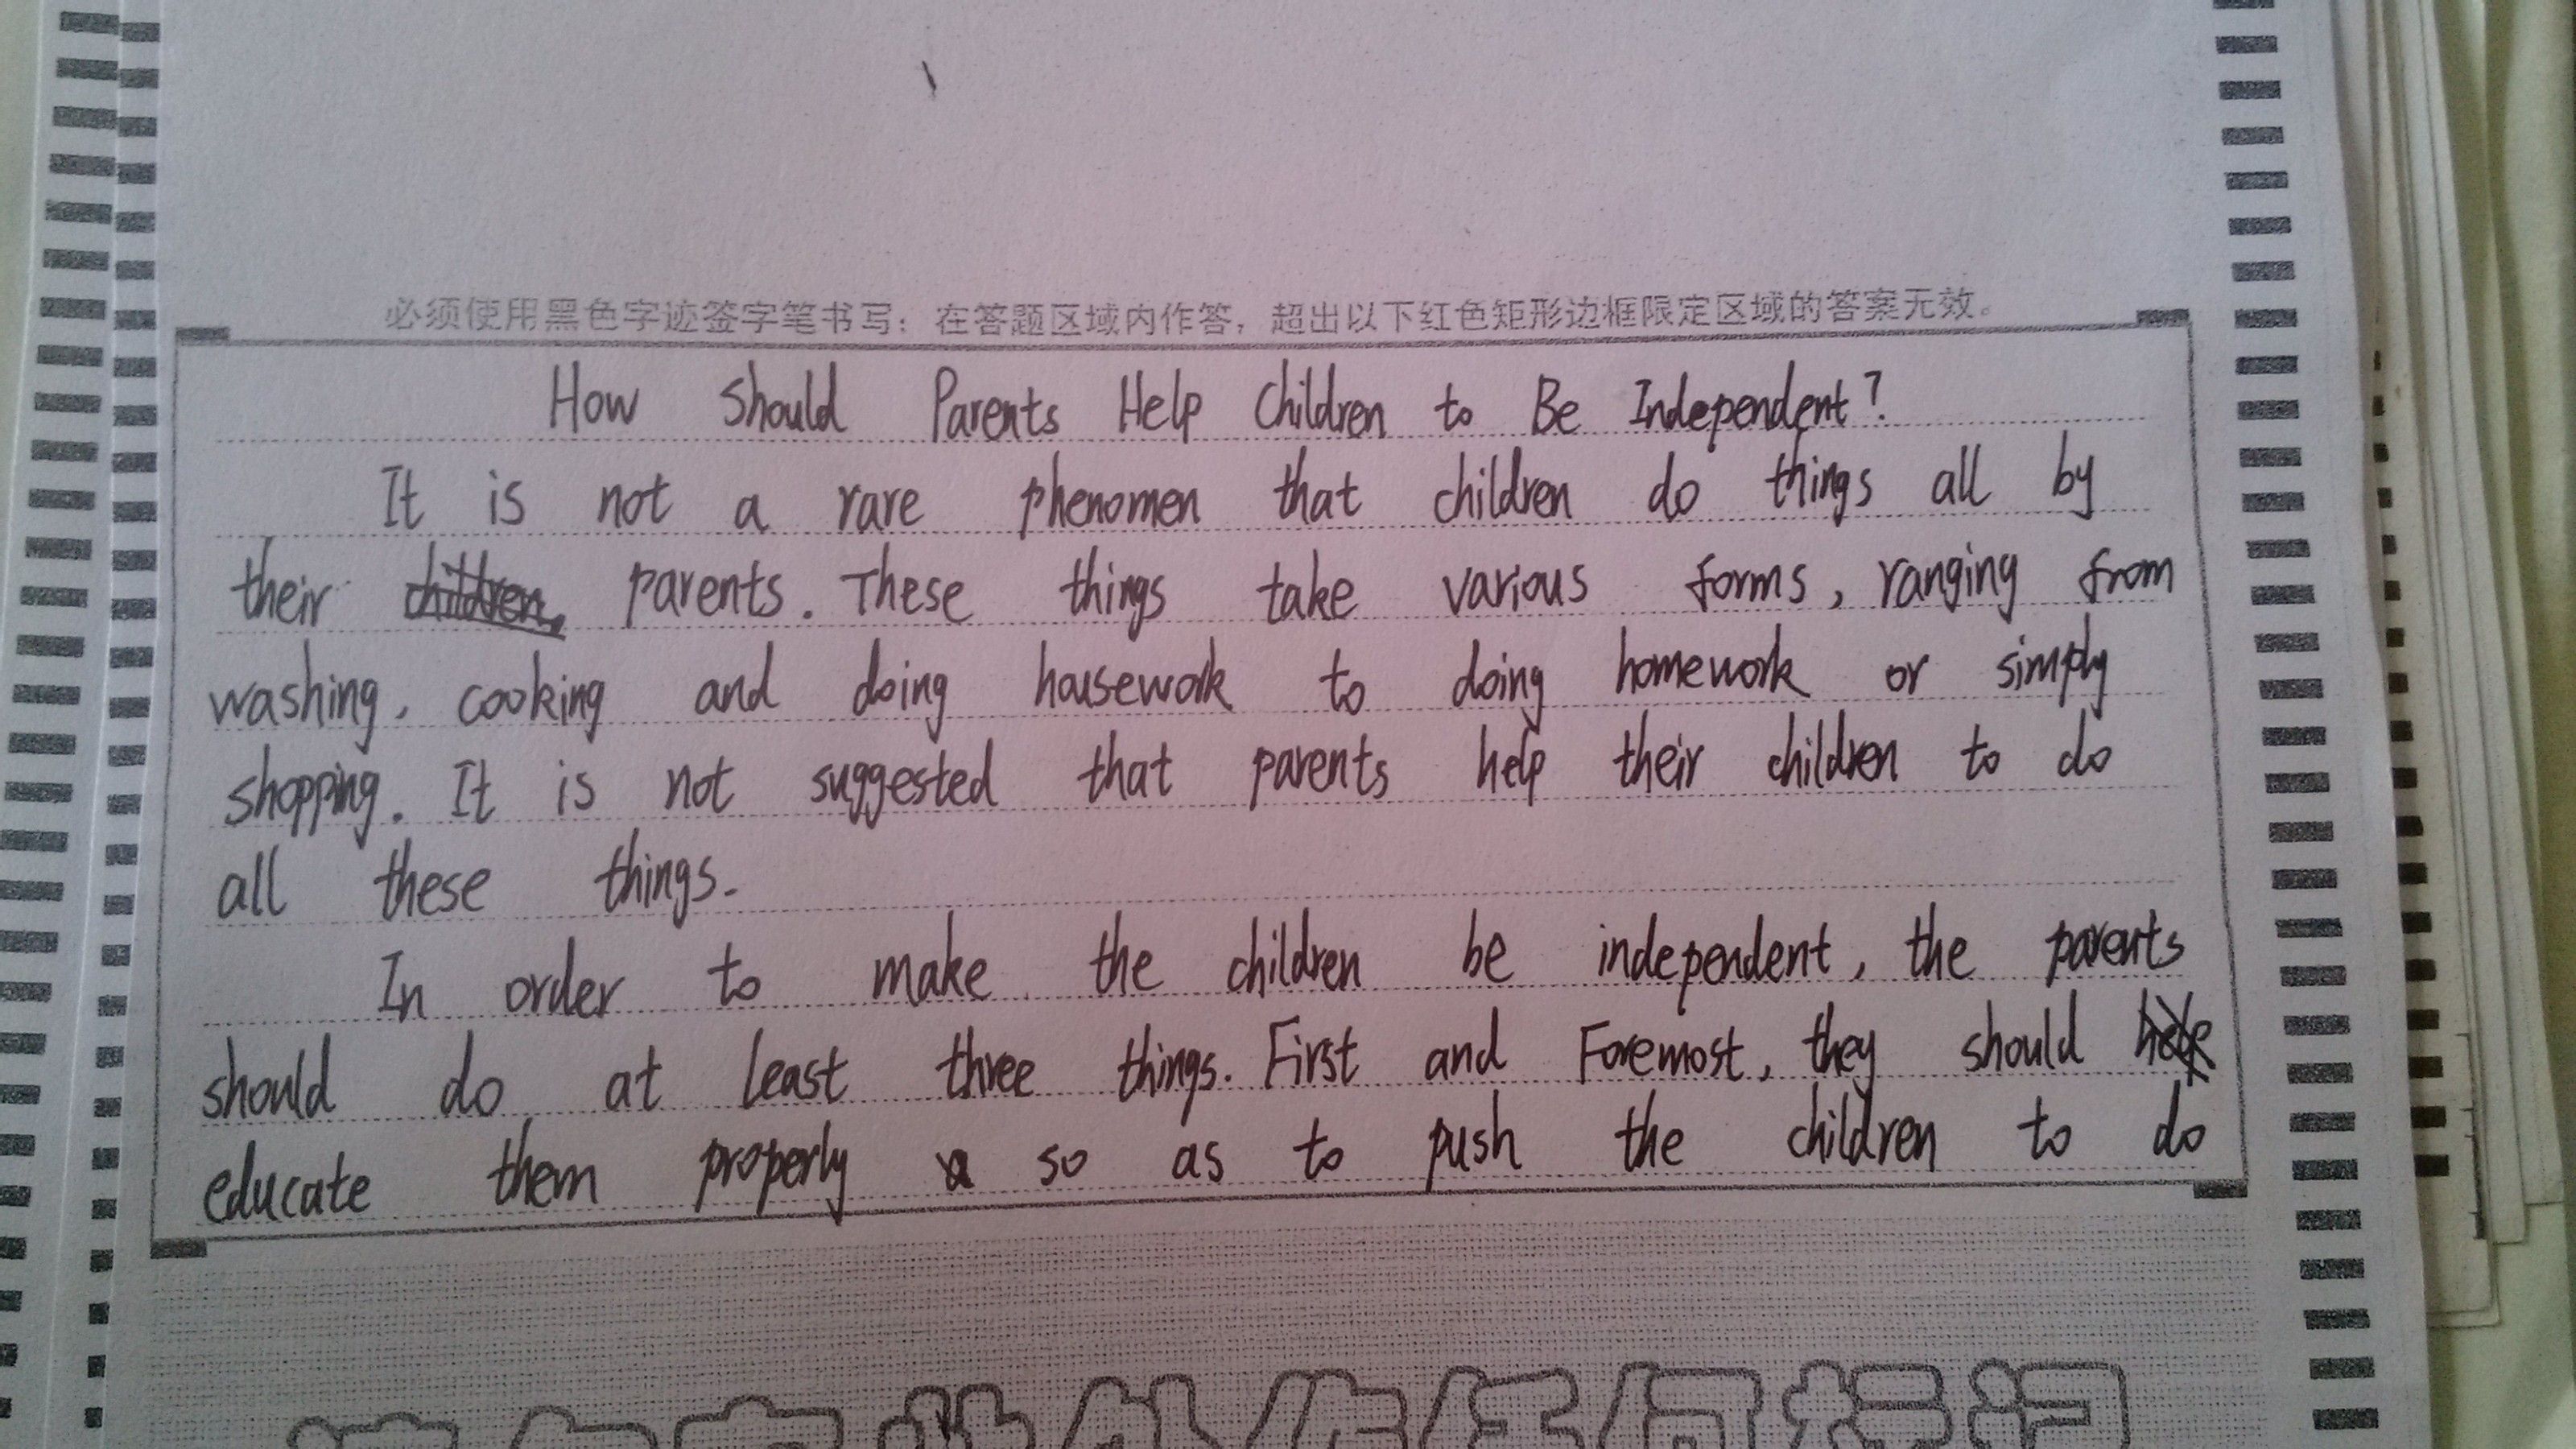 必须使用黑色字迹签字笔书写；在答题区域内作答，超出以下红色矩形边框限定区域的答案无效。
How Should Parents Help Children to Be Independent?
It is not a rare phenomen that children do things all by
their children, parents. These things take various forms, ranging from
washing, cooking and doing housework to doing homework or simply
shopping. It is not suggested that parents help their children to do
all these things.
In order to make the children be independent, the parents
should do at least three things. First and Foremost, they should
educate them properly so as to push the children to do